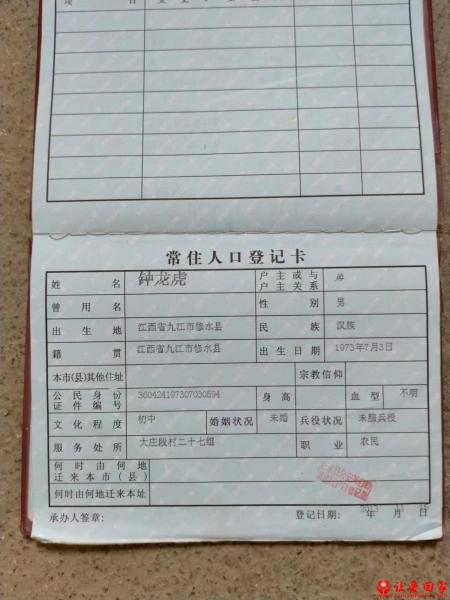 常住人口登记卡
姓名 钟龙虎 户主或与户主关系 弟
曾用名 性别 男
出生地 江西省九江市修水县 民族 汉族
籍贯 江西省九江市修水县 出生日期 1973年7月3日
本市(县)其他住址 宗教信仰
公民身份证件编号 360424197307030594 身高 血型 不明
文化程度 初中 婚姻状况 未婚 兵役状况 未服兵役
服务处所 大庄段村二十七组 职业 农民
何时由何地迁来本市(县)
何时由何地迁来本址
承办人签章: 登记日期: 年 月 日
让爱回家